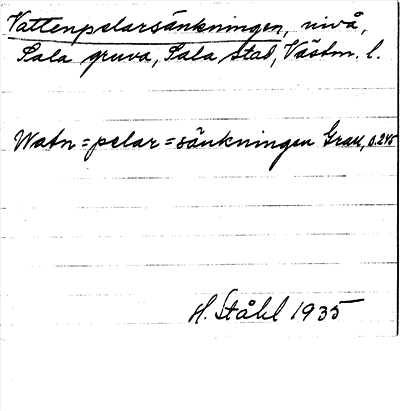 Vattenpelarsänkningen, nivå,
Sala gruva, Sala stad, Västm. l.
Watn=pelar=sänkningen Grau, s. 245
H. Ståhl 1935